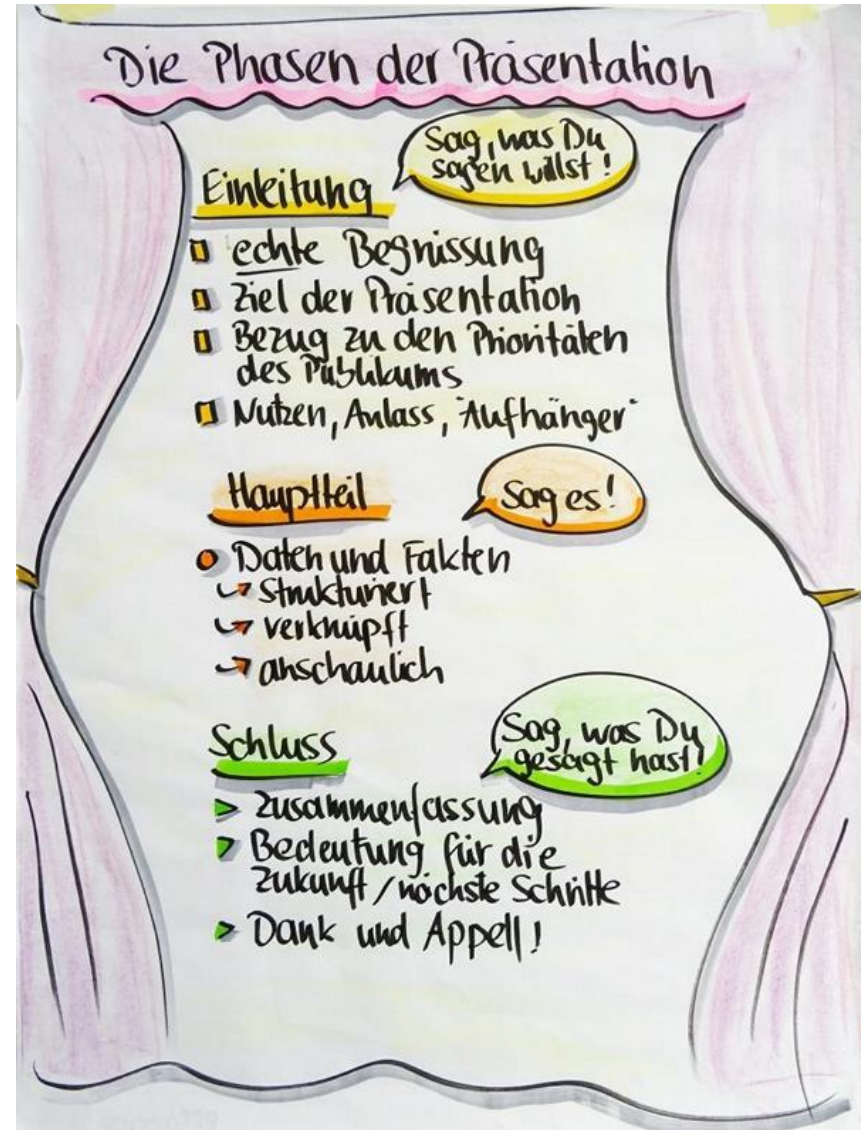 Die Phasen der Präsentation
Sag, was Du
sagen willst!
Einleitung
echte Begrüssung
Ziel der Präsentation
Bezug zu den Prioritäten
des Publikums
Nutzen, Anlass, "Aufhänger"
Hauptteil
Sag es!
Daten und Fakten
strukturiert
verknüpft
anschaulich
Schluss
Sag, was Du
gesagt hast!
Zusammenfassung
Bedeutung für die
Zukunft / nächste Schritte
Dank und Appell!